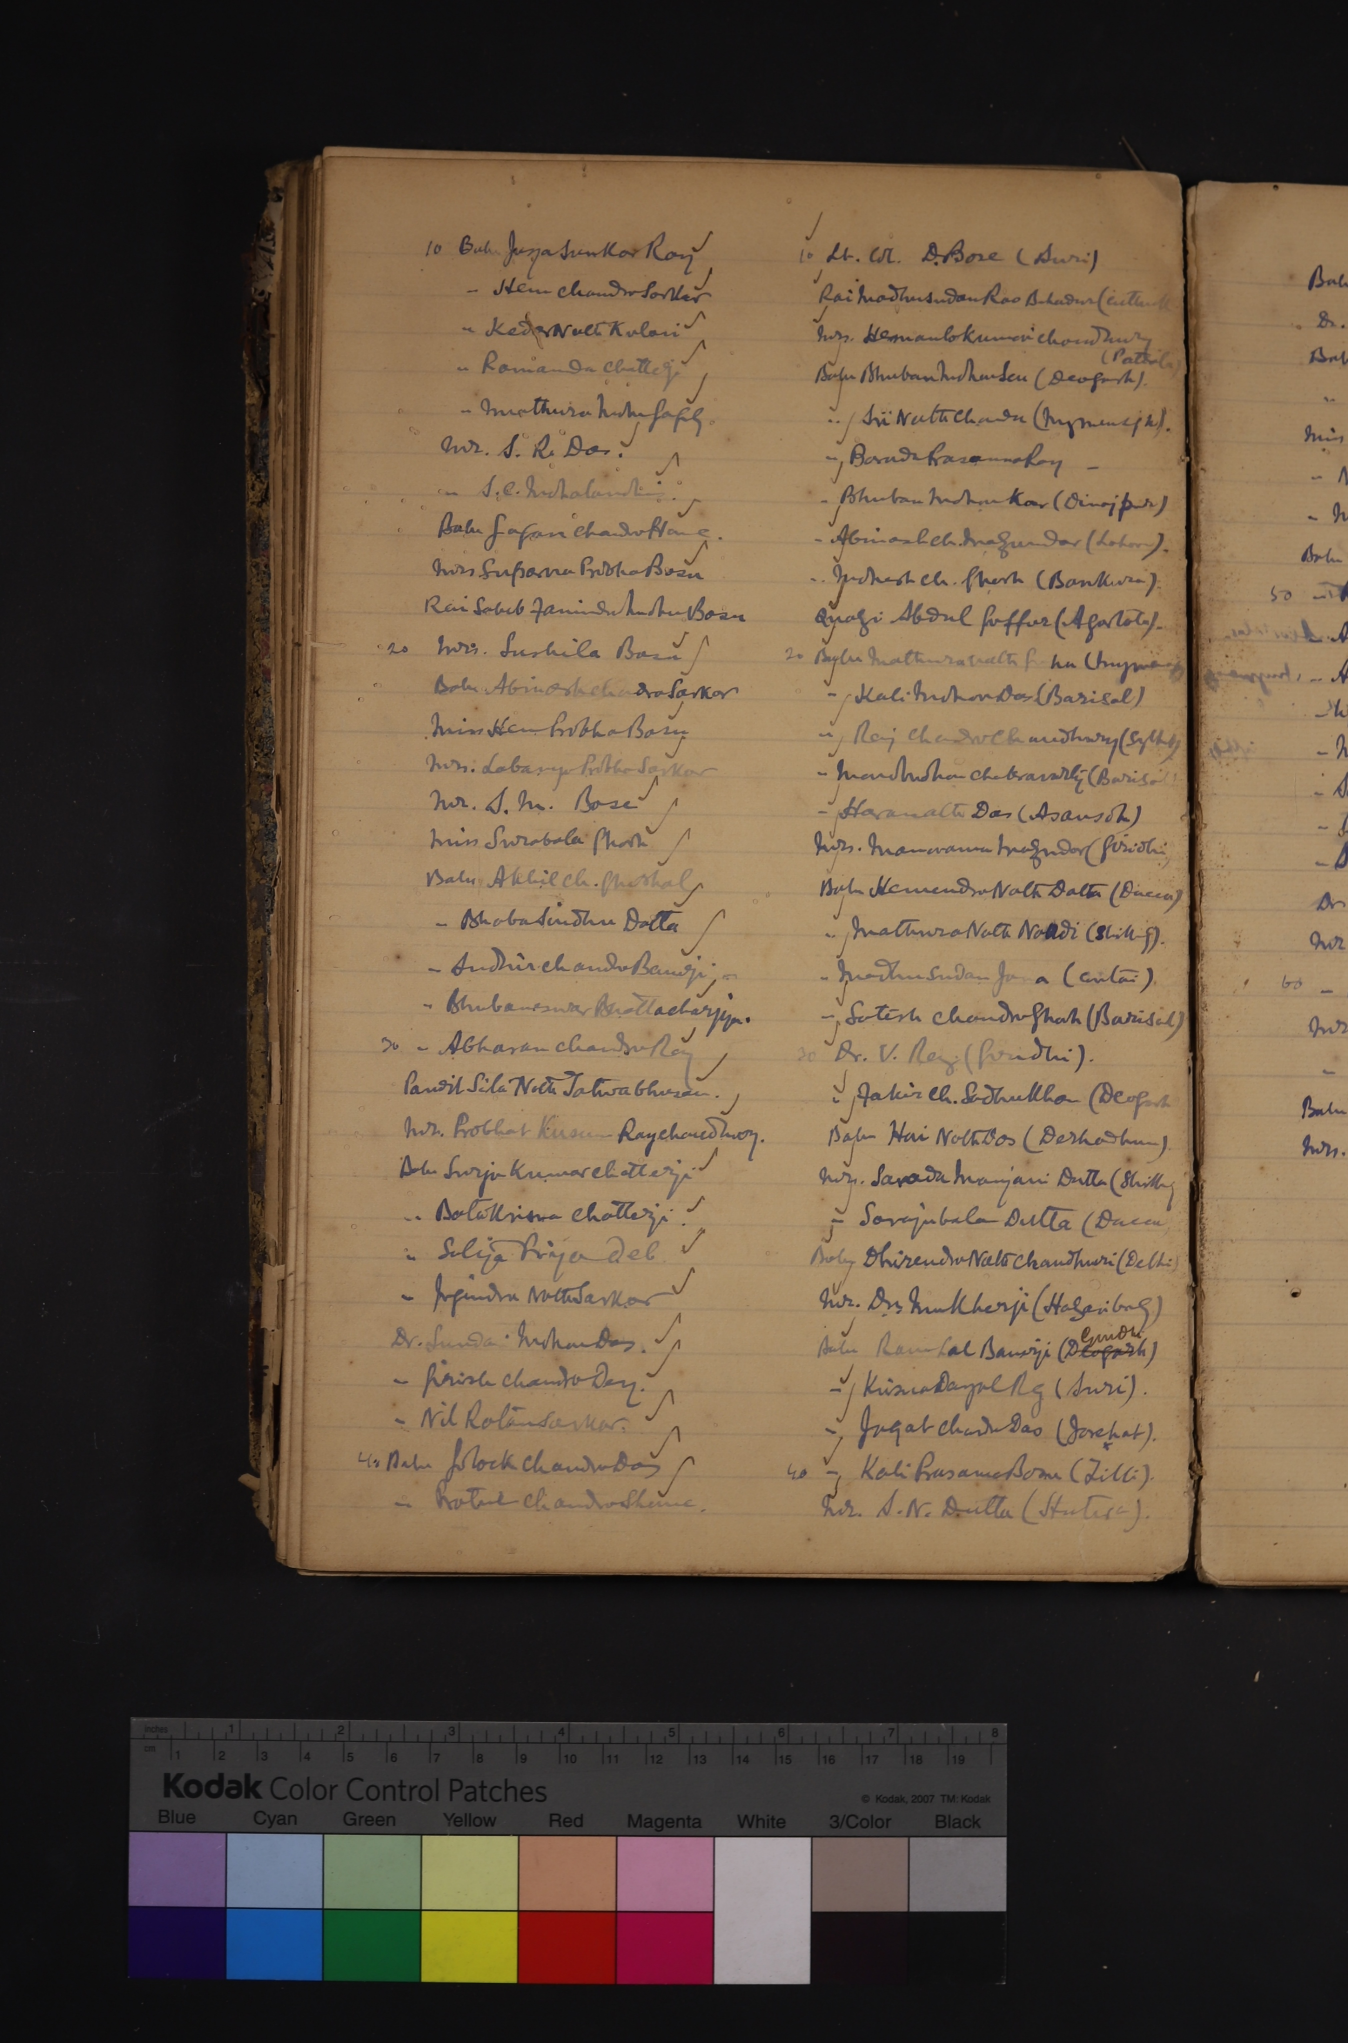 10 Babu Joya Sunkar Ray
" Hem Chandra Sarkar
" Kedar Nath Kulavi
" Ramananda Chatterji
" Mathura Mohan Ganguly
Mr. S. R. Das.
" S. C. Mahalanobis.
Babu Gagan Chandra Home.
Miss Suparna Probha Bosu
Rai Saheb Fanindra Mohan Bosu
20 Mrs. Sushila Bosu
Babu Abinash Chandra Sarkar
Miss Hem Probha Bosu
Mrs. Labanya Probha Sarkar
Mr. S. M. Bose
Miss Surabala Ghosh
Babu Akhil Ch. Ghoshal
" Bhaba Sindhu Datta
" Sudhir Chandra Banerji
" Bhubaneswar Bhattacharjya.
30 " Abharan Chandra Ray
Pandit Sita Nath Tatwabhusan.
Mr. Probhat Kusum Raychoudhury.
Babu Surja Kumar Chatterji
" Bata Krisna Chatterji
" Satya Priya Deb
" Jogindra Nath Sarkar
Dr. Sundari Mohan Das.
" Girish Chandra Dey.
" Nil Ratan Sarkar.
40 Babu Golock Chandra Das
" Protul Chandra Shome.
10 Lt. Col. D. Bose (Suri)
Rai Madhusudan Rao Bahadur (Cuttack
Mrs. Hemanta Kumari Choudhury
(Patiala)
Babu Bhuban Mohan Sen (Deogarh).
" Sri Nath Chanda (Mymensigh).
" Barada Prasanna Ray "
" Bhuban Mohan Kar (Dinajpur)
" Abinash Ch. Mazumdar (Lahore).
" Mohesh Ch. Ghosh (Bankura).
Quazi Abdul Goffur (Agartola).
20 Babu Mathura Nath
" Kali Mohan Das (Barisal)
" Raj Chandra Chaudhury (Sylhet)
" Manomohan Chakravarty (Barisal
" Haranath Das (Asansol)
Mrs. Manorama Mazumdar (Giridhi)
Babu Hemendra Nath Datta (Dacca)
" Mathura Nath Nandi (Shillong).
" Madhusudan Jana (Contai).
" Satish Chandra Ghosh (Barisal)
30 Dr. V. Ray (Giridhi).
" Fakir Ch. Sadhukhan (Deogarh
Babu Hari Nath Das (Derhadhun)
Mrs. Sarada Manjari Dutta (Shillong
" Sarajubala Dutta (Dacca
Babu Dhirendra Nath Chaudhuri (Delhi)
Mr. Drs. Mukherji (Hazaribag)
Giridhi
Babu Ram Lal Banerji (Deogarh)
" Krisna Dayal Ray (Suri).
" Jagat Chandra Das (Jorehat).
40 " Kali Prasanna Bosu (
Mr. S. N. Dutta (
Babu
Dr.
Miss
Babu
50
Dr
Mr
60
Babu
Mrs.
inches 1 2 3 4 5 6 7 8
cm 1 2 3 4 5 6 7 8 9 10 11 12 13 14 15 16 17 18 19
Kodak Color Control Patches
© Kodak, 2007 TM: Kodak
Blue Cyan Green Yellow Red Magenta White 3/Color Black